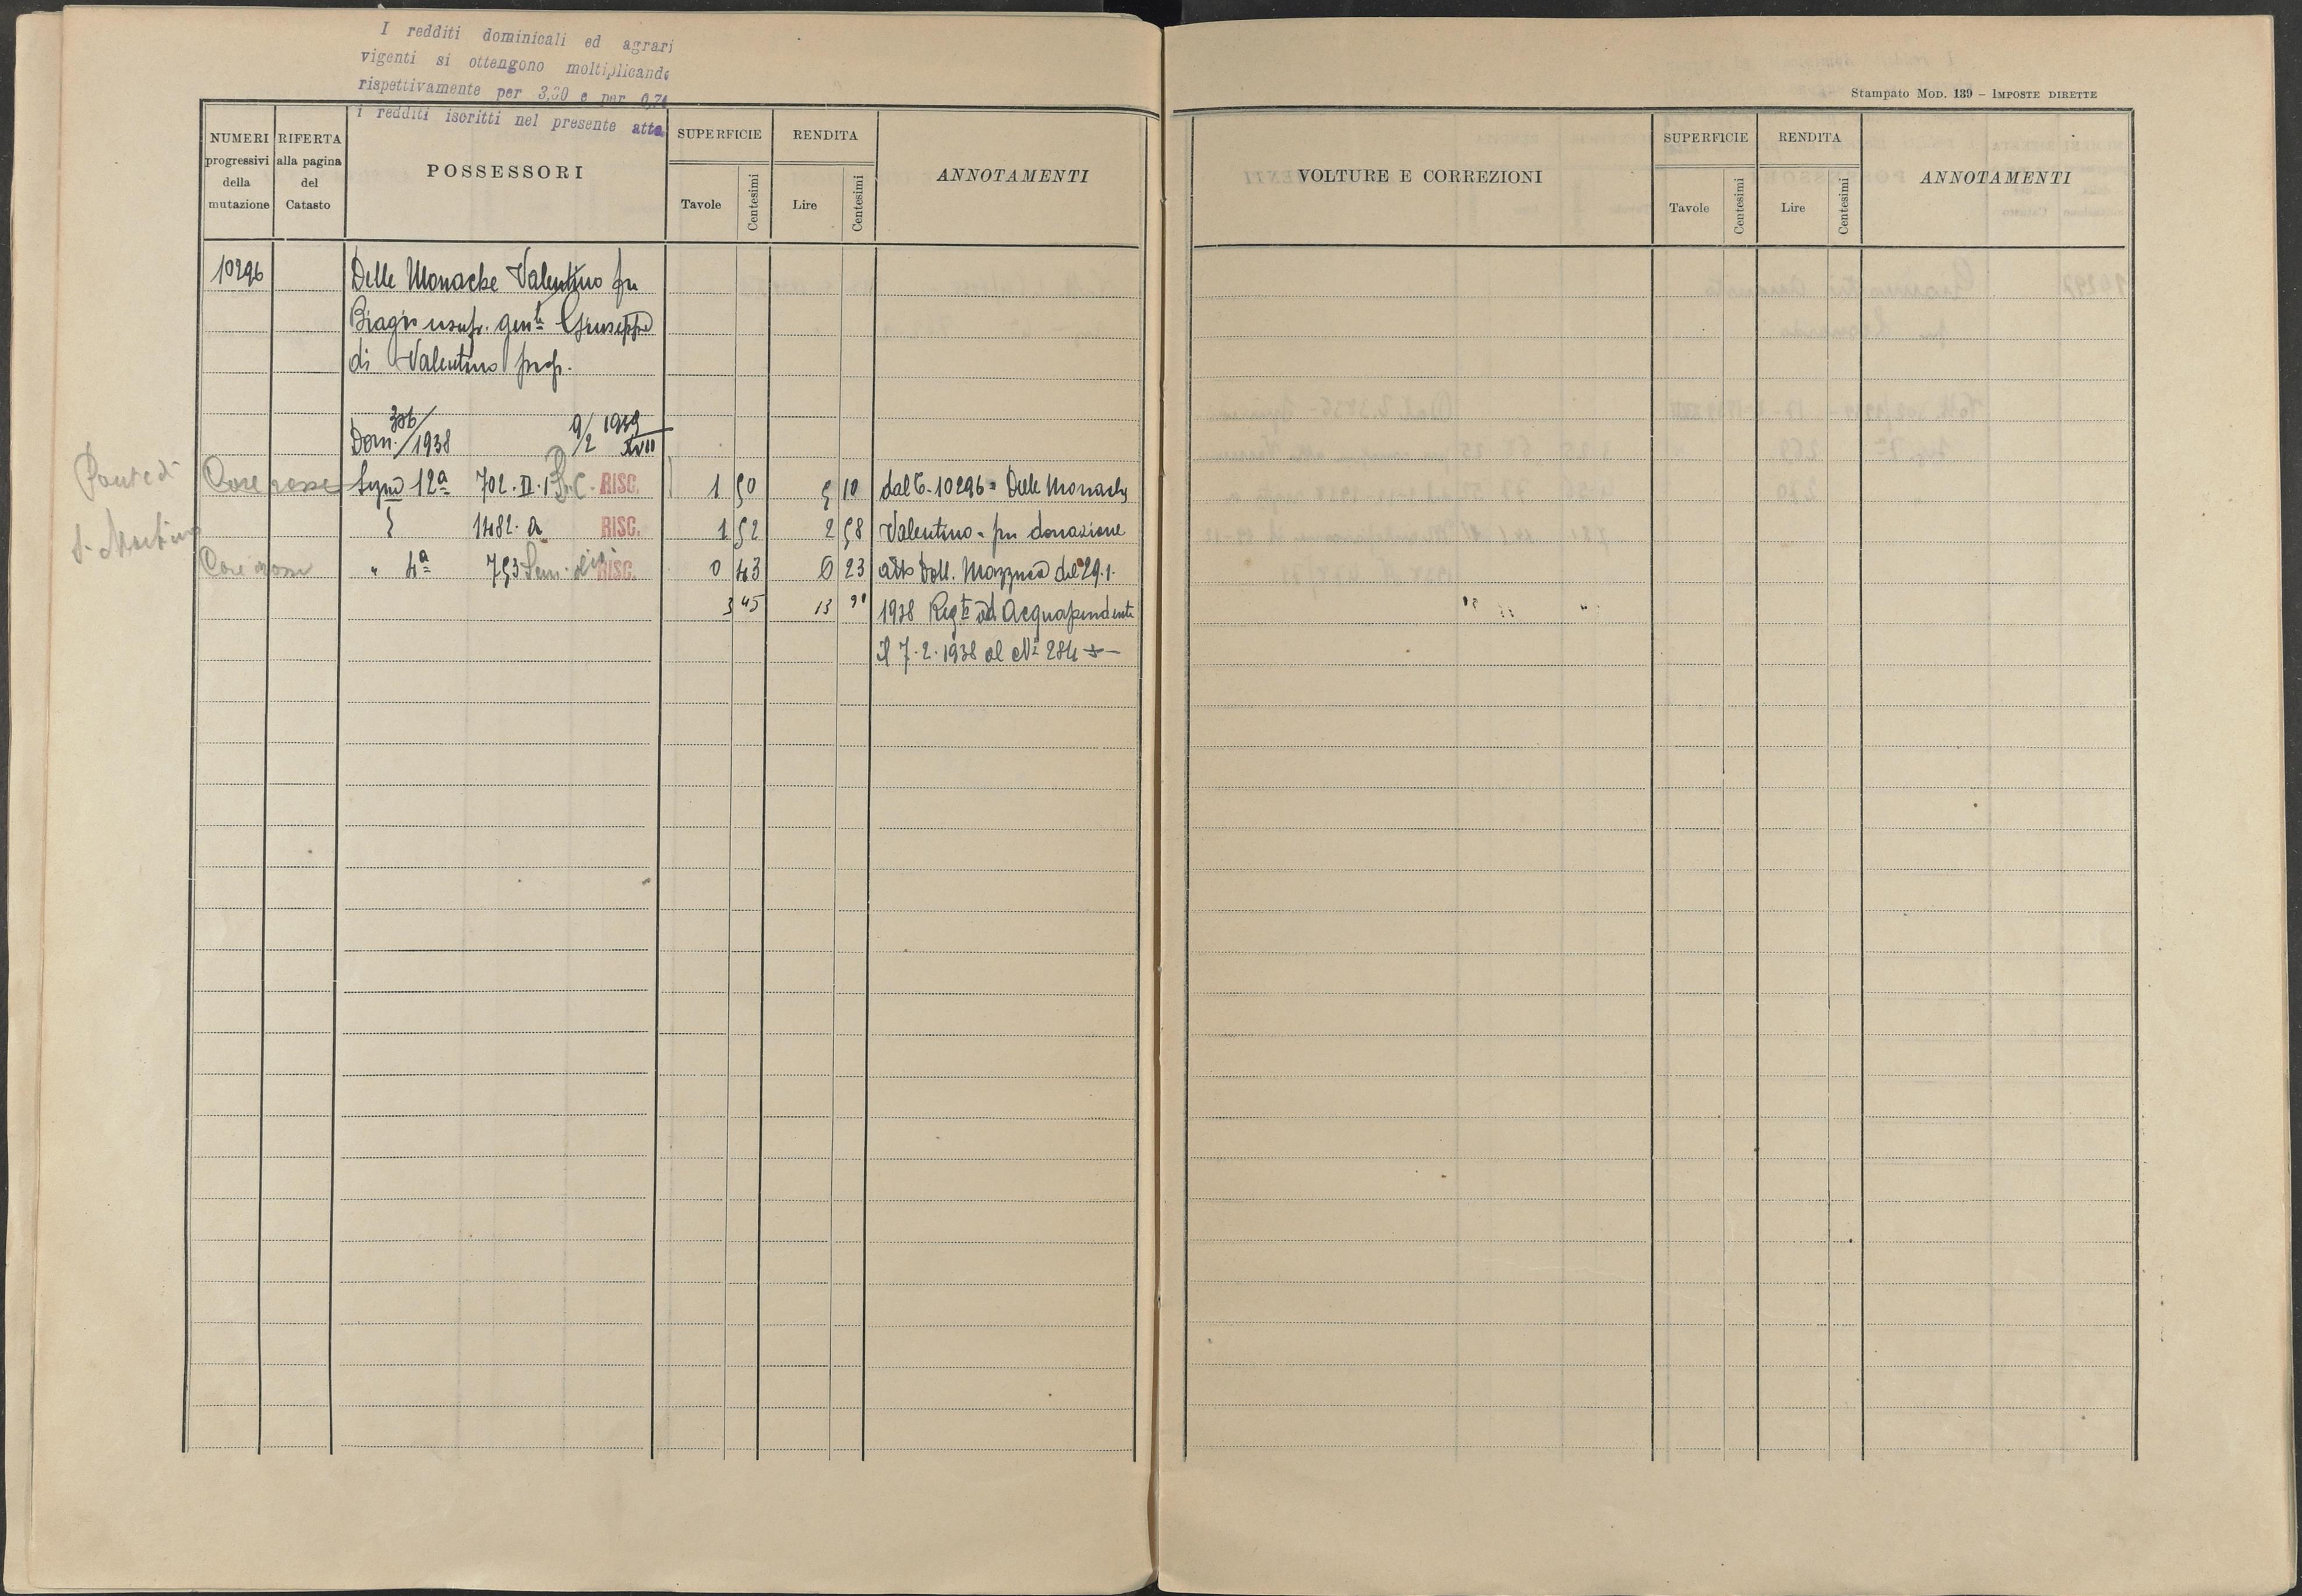 I redditi dominicali ed agrari
vigenti si ottengono moltiplicando
rispettivamente per 3,30 e per 0,74
i redditi iscritti nel presente atto
Stampato Mod. 139 – Imposte dirette
NUMERI progressivi della mutazione
RIFERTA alla pagina del Catasto
POSSESSORI
SUPERFICIE Tavole Centesimi
RENDITA Lire Centesimi
ANNOTAMENTI
10296 Delle Monache Valentino fu
Biagio usufr. gen.le Giuseppe
di Valentino prop.
Dom. 306/1938 9/2 1939 XVII
Ponte di
S. Martino
Cave rosse Segno 12ª 702. II. 1 B.C. RISC. 1 50 5 10 dal C. 10296 = Delle Monache
1482. a RISC. 1 52 2 58 Valentino. per donazione
Cave rosse " 4ª 753 Sem. RISC. 0 43 6 23 atto Dott. Mazzuca del 29.1.
3 45 13 91 1938 Reg.to ad Acquapendente
il 7.2.1938 al N° 284
VOLTURE E CORREZIONI
SUPERFICIE Tavole Centesimi
RENDITA Lire Centesimi
ANNOTAMENTI